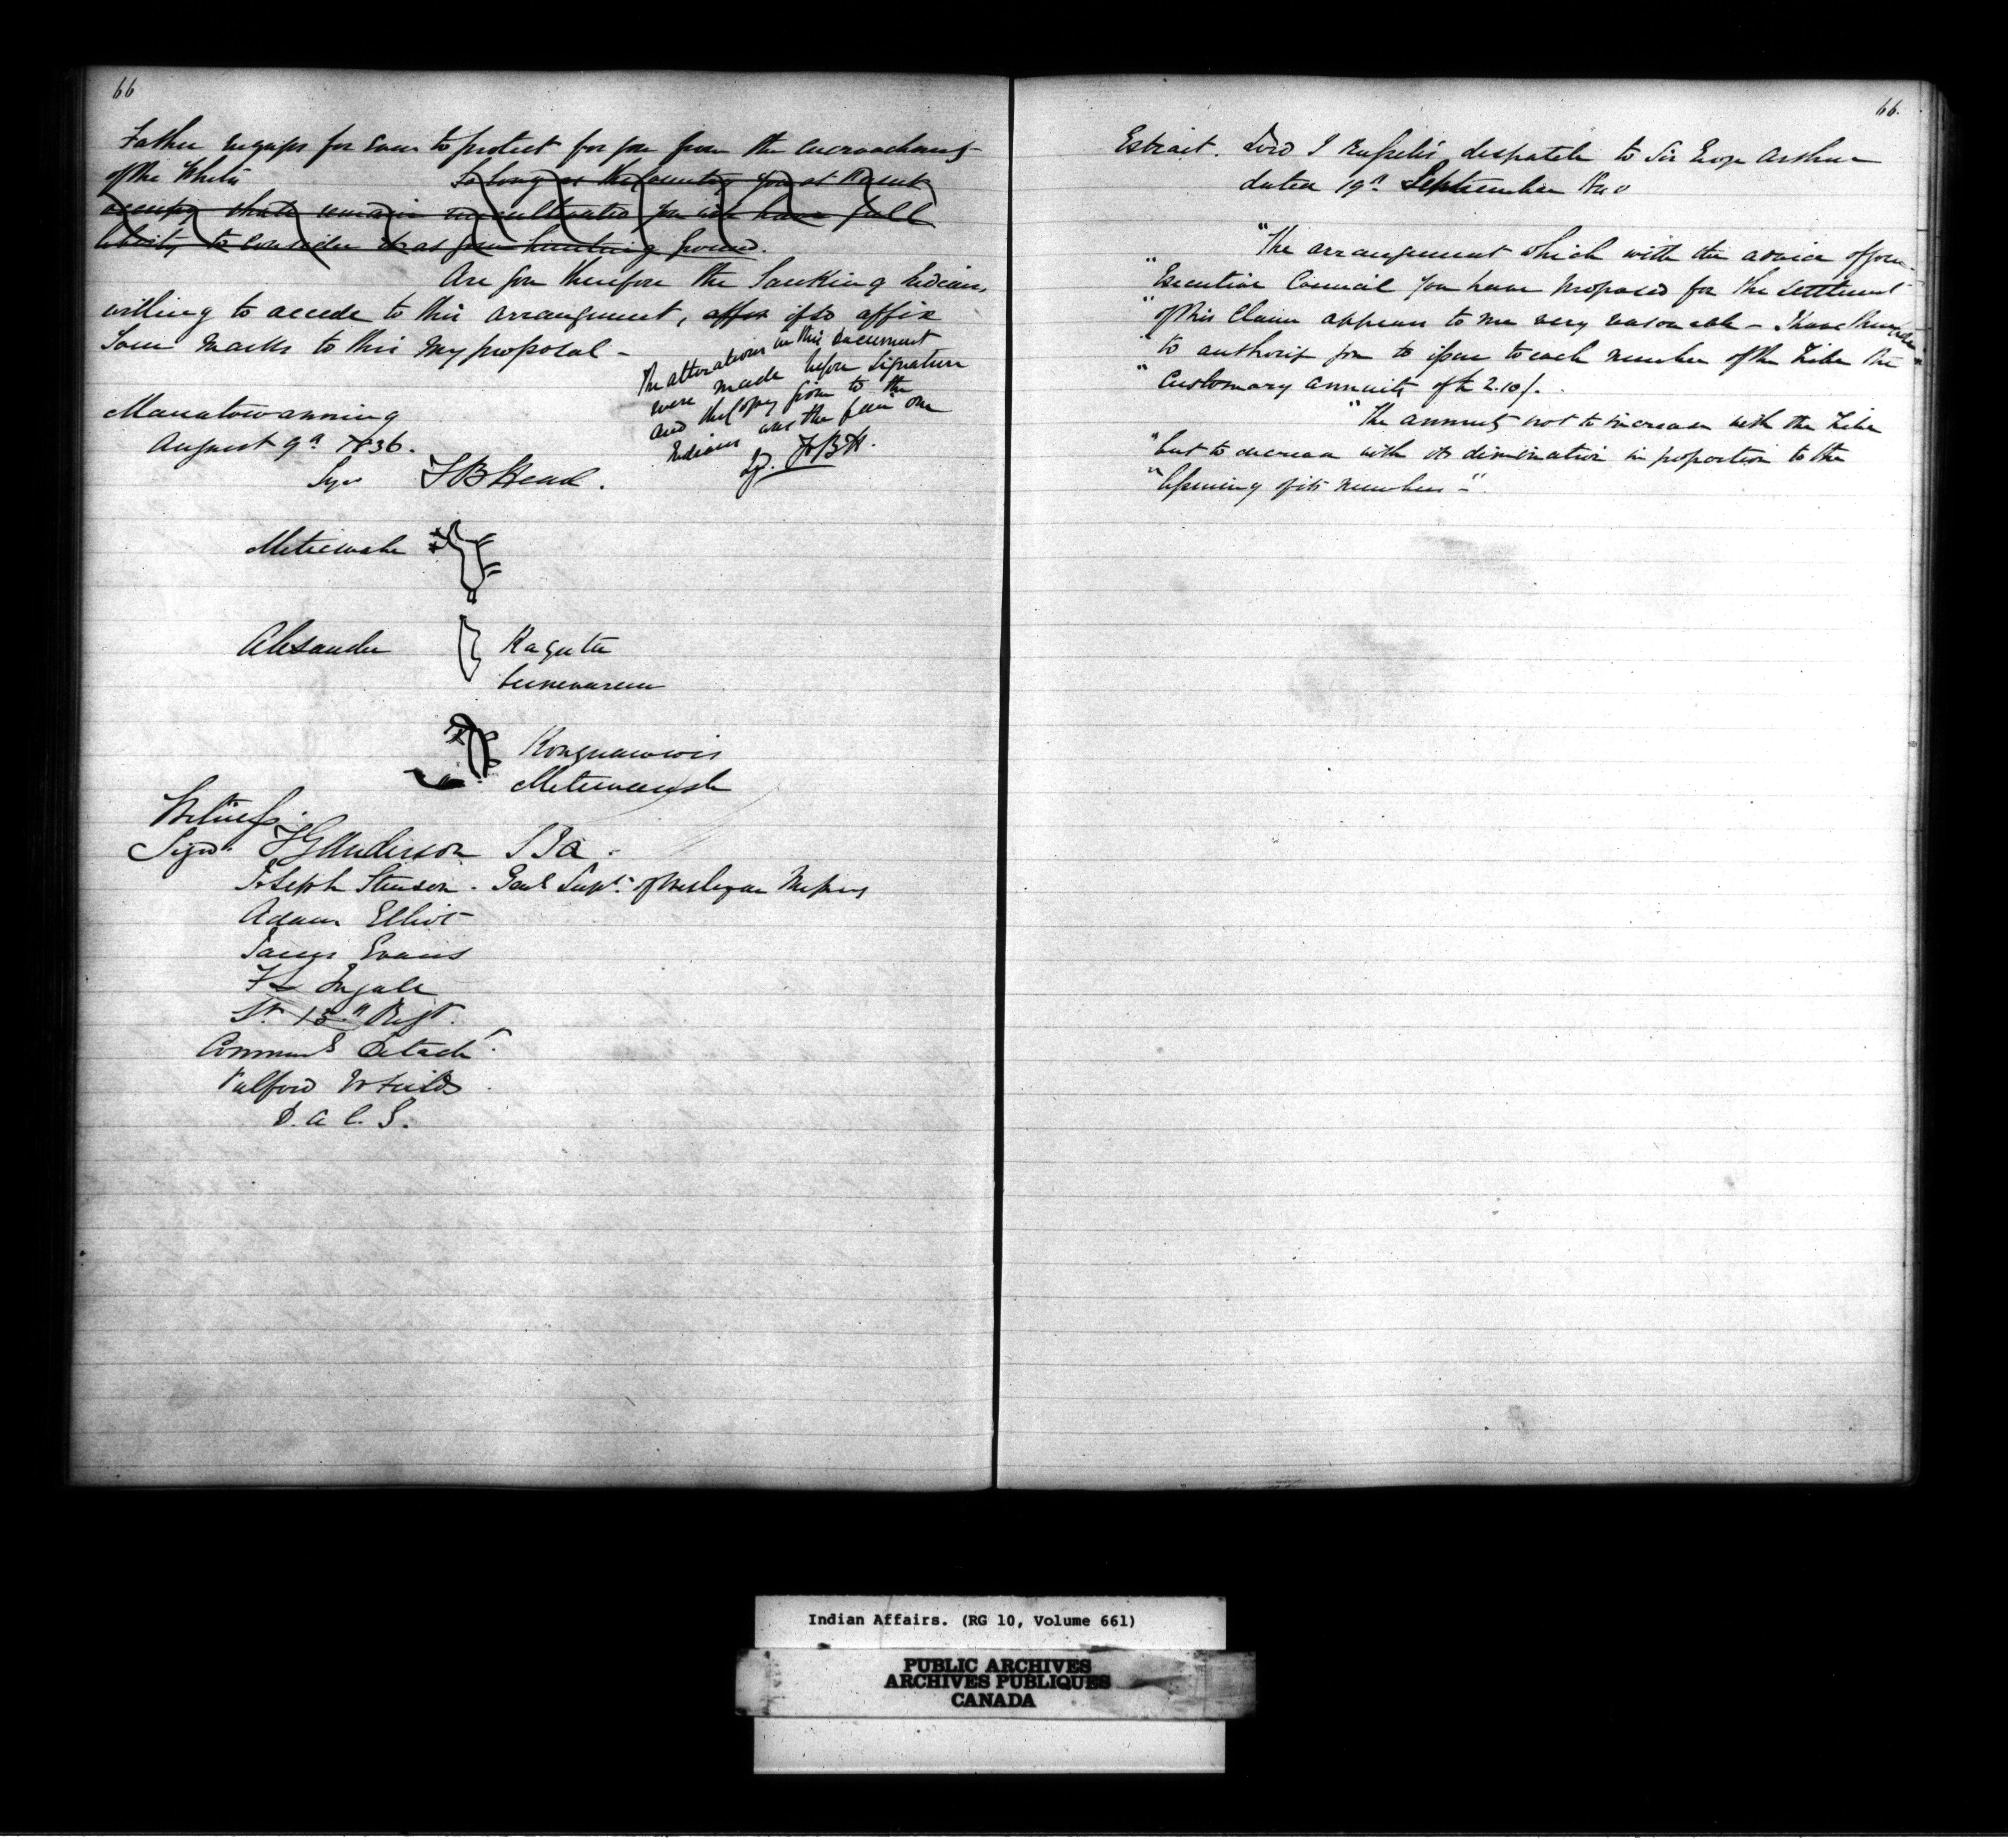 66
Father engages for ever to protect for you from the encroachments
of the Whites So long as the country you at present
occupy shall remain uncultivated you will have full
liberty to consider it as your hunting ground.
Are you therefore the Sauking Indians
willing to accede to this arrangement, affix if so affix
your marks to this my proposal -
The alterations in this document
were made before signature
and the copy given to the
Indians was the fair one
Sgd. F B H.
Manatowanning
August 9th 1836.
Signed F B Head.
Metiewabe
Alexander Kaguta
bunevareum
Kongnawwis
Metiewaush
Witness.
Signd. T G Anderson S I A.
Joseph Stinson. Genl Supt. of Wesleyan Missions
Adam Elliot
James Evans
F L Ingall
Lt. 15th Regt.
Command Detacht.
Talfourd W Field
D. A. C. G.
66.
Extract. Lord J Russell's despatch to Sir George Arthur
dated 19th September 1840
"The arrangement which with the advice of your
"Executive Council you have proposed for the settlement
"of this Claim appears to me very reasonable - I have therefore
"to authorise you to issue to each member of the Tribe the
"Customary annuity of £2.10/.
"The annuity not to increase with the Tribe
"but to decrease with its diminution in proportion to the
"lessening of its numbers -".
Indian Affairs. (RG 10, Volume 661)
PUBLIC ARCHIVES
ARCHIVES PUBLIQUES
CANADA